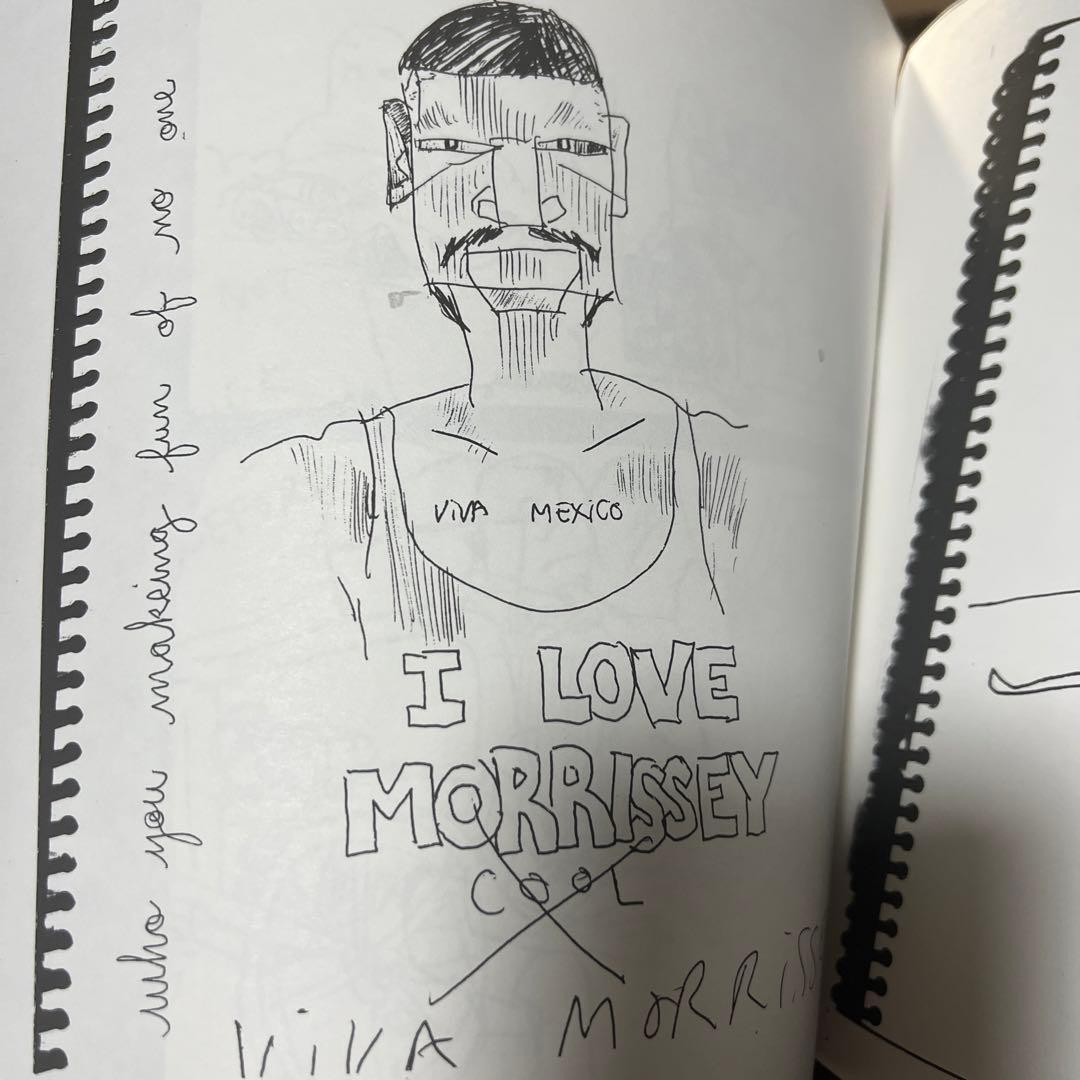 who you making fun of no one
VIVA MEXICO
I LOVE
MORRISSEY
COOL
VIVA MORRISS